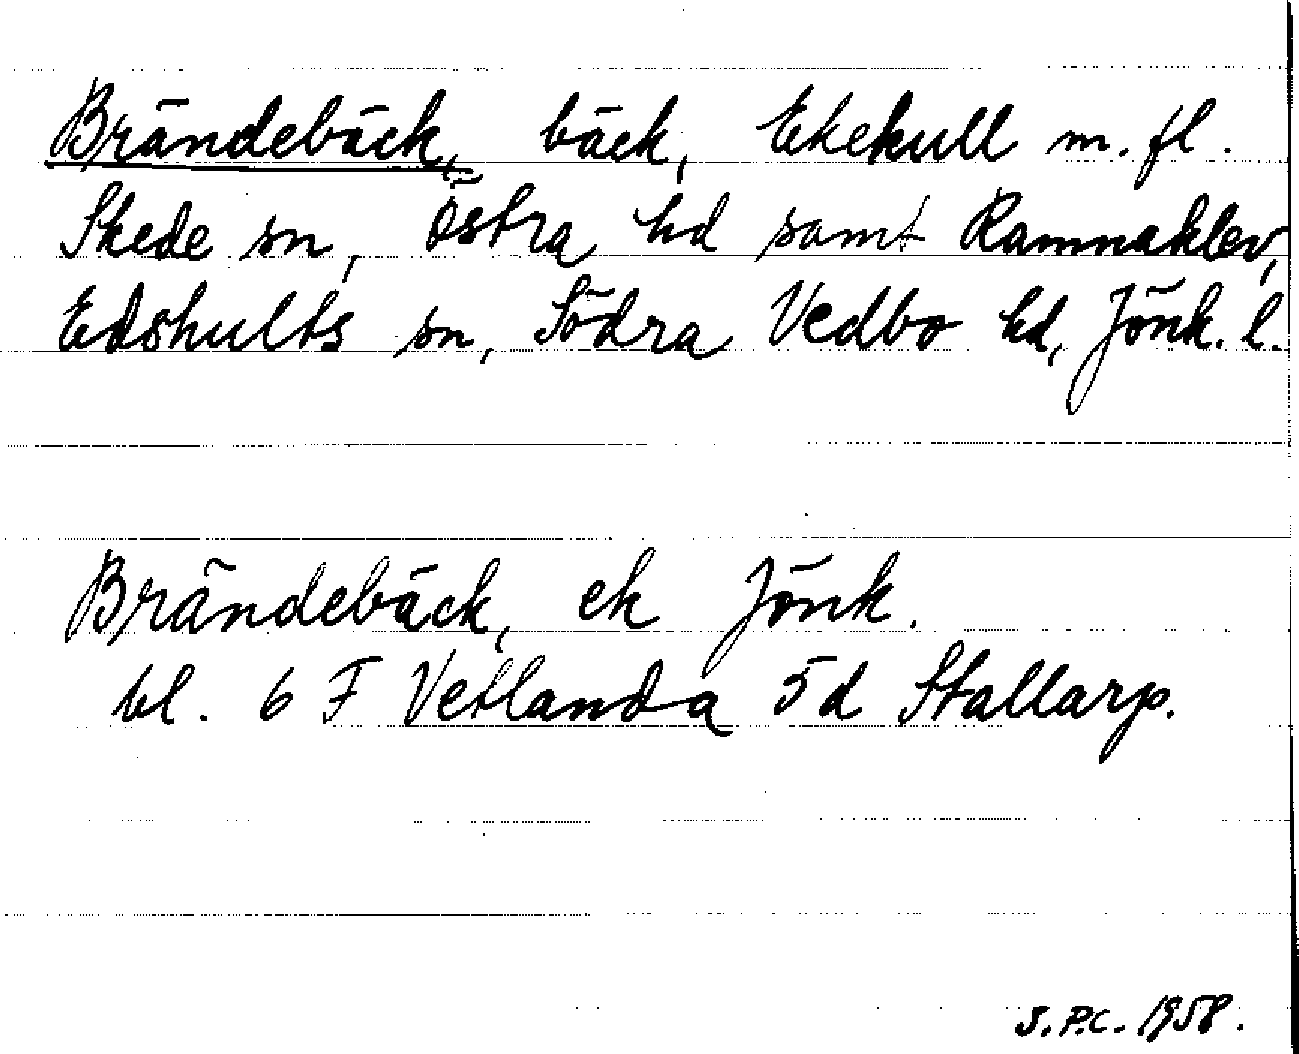 Brändebäck, bäck, Ekekull m. fl.
Skede sn, Östra hd samt Ramnaklev,
Edshults sn, Södra Vedbo hd, Jönk. l.
Brändebäck, ek Jönk.
bl. 6 F Vetlanda 5d Stallarp.
S.P.C. 1958.